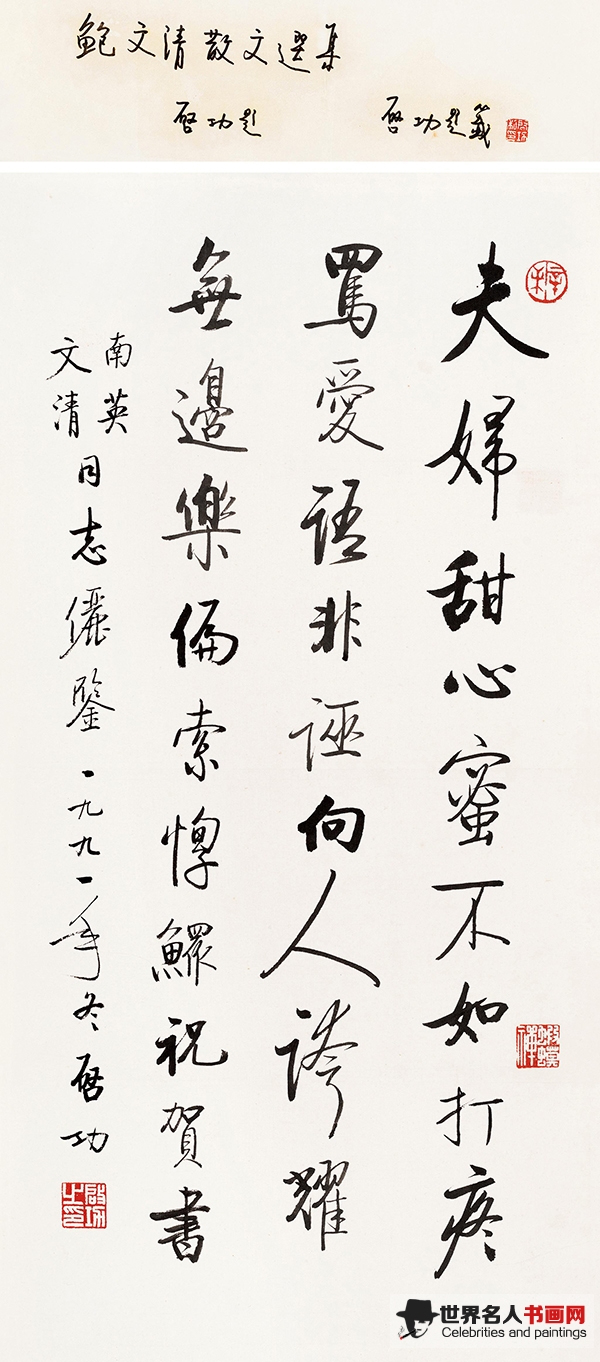 鮑文清散文選集
啓功題
啓功題籤
夫婦甜心蜜不如打疼
罵愛語非誣向人誇耀
無邊樂偏索惸鰥祝賀書
南英
文清
同志儷鑒一九九一年冬啓功
啓功之印
世界名人书画网
Celebrities and paintings